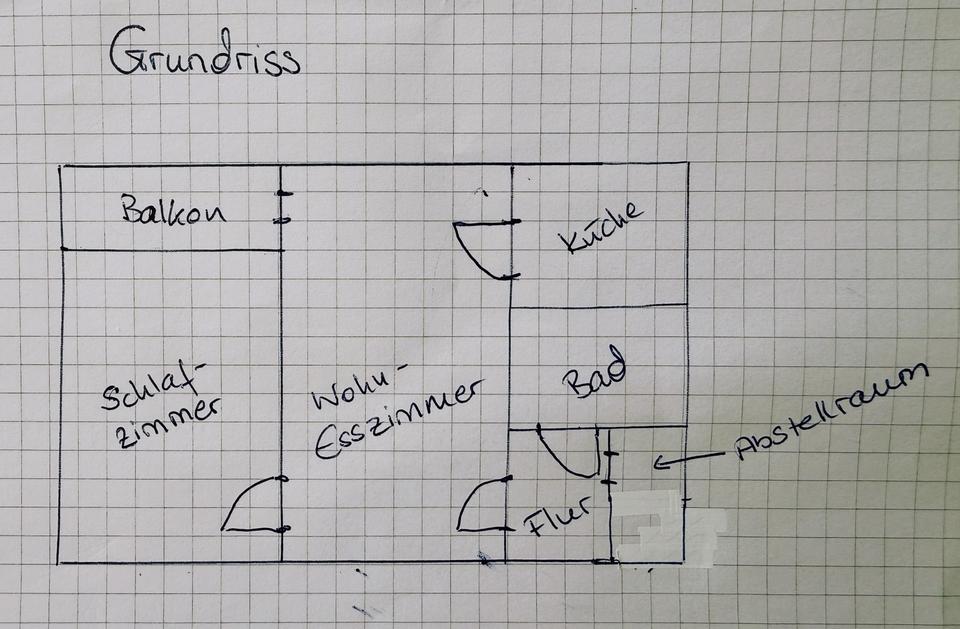 Grundriss
Balkon
Küche
Schlaf-
zimmer
Wohn-
Esszimmer
Bad
Abstellraum
Flur